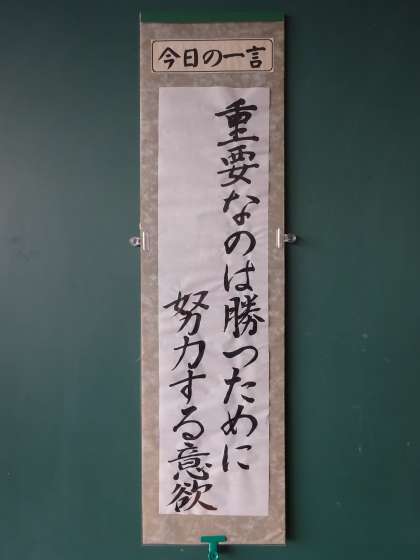 今日の一言
重要なのは勝つために
努力する意欲